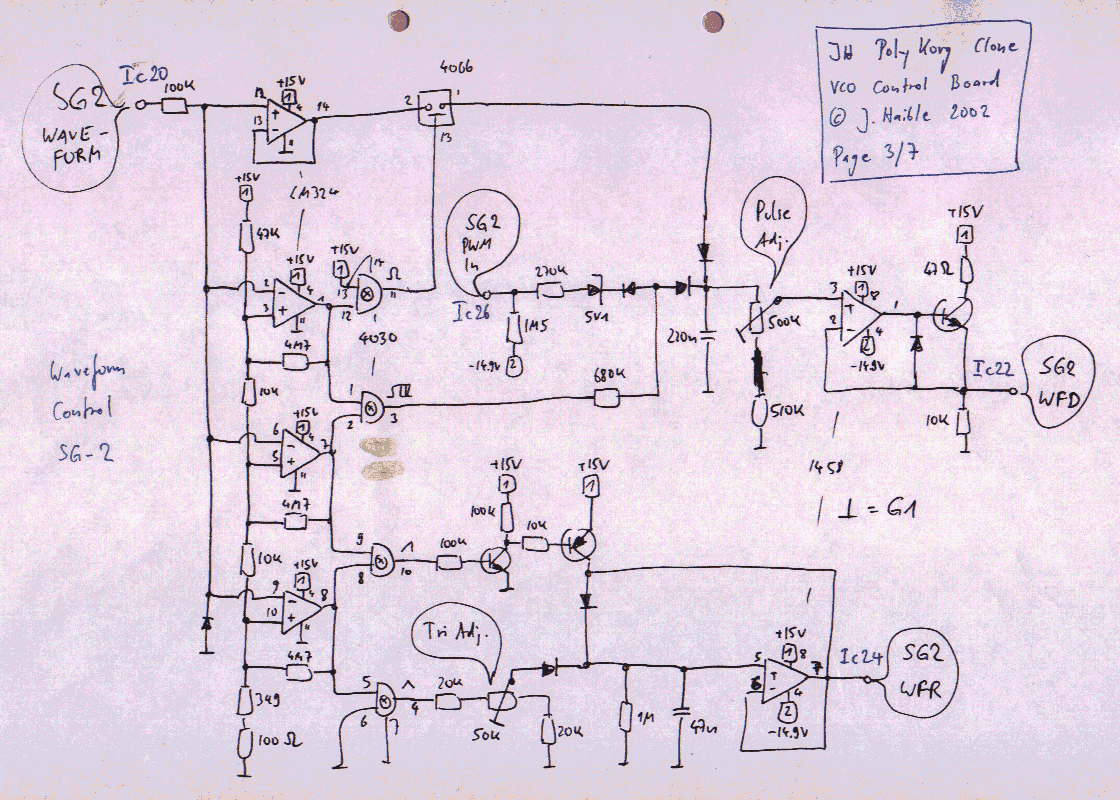 JH Poly Korg Clone
VCO Control Board
© J. Haible 2002
Page 3/7
SG2
WAVE-
FORM
Ic20
100K
12
13
+15V
1
4
14
11
LM324
4066
2
1
13
+15V
1
47K
+15V
1
4
2
3
1
11
+15V
1
14
13
12
11
4030
4M7
10K
SG2
PWM
In
Ic26
270K
1M5
-14.9V
2
5V1
680K
220n
Pulse
Adj.
500K
510K
+15V
1
8
3
2
1
4
2
-14.9V
1458
+15V
1
47Ω
Ic22
SG2
WFD
10K
⊥ = G1
Waveform
Control
SG-2
1
2
3
+15V
1
4
6
5
7
11
4M7
10K
9
8
10
100K
+15V
1
100K
10K
+15V
1
+15V
1
4
9
10
8
11
4M7
349
100Ω
Tri Adj.
5
6
4
7
20K
50K
20K
1M
47n
+15V
1
8
5
6
7
4
2
-14.9V
Ic24
SG2
WFR